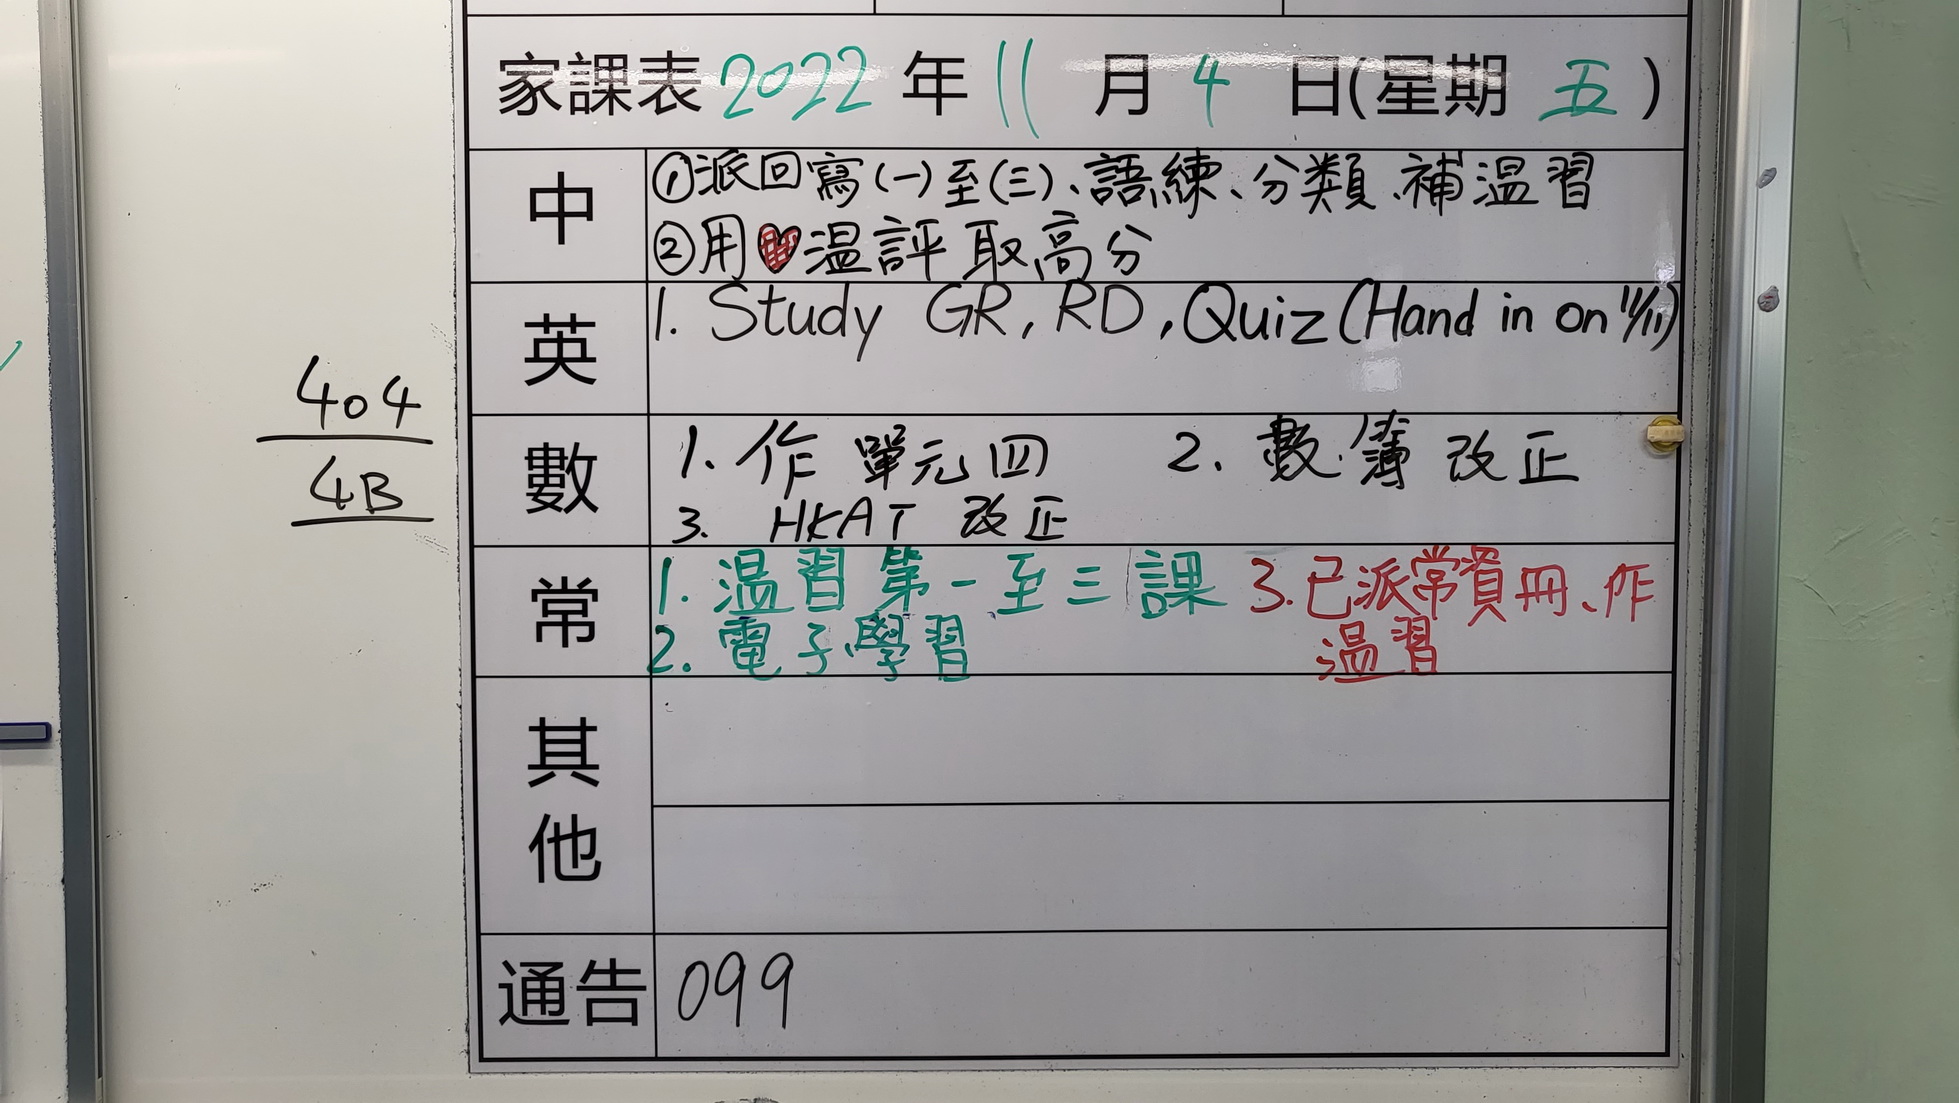 家課表 2022 年 11 月 4 日(星期 五)
中
①派回寫(一)至(三)、語練、分類、補温習
②用♥温評 取高分
英
1. Study GR, RD, Quiz (Hand in on 11/11)
404
4B
數
1. 作 單元四 2. 數簿 改正
3. HKAT 改正
常
1. 温習 第一至三課 3. 已派常資冊、作
2. 電子學習 温習
其他
通告 099